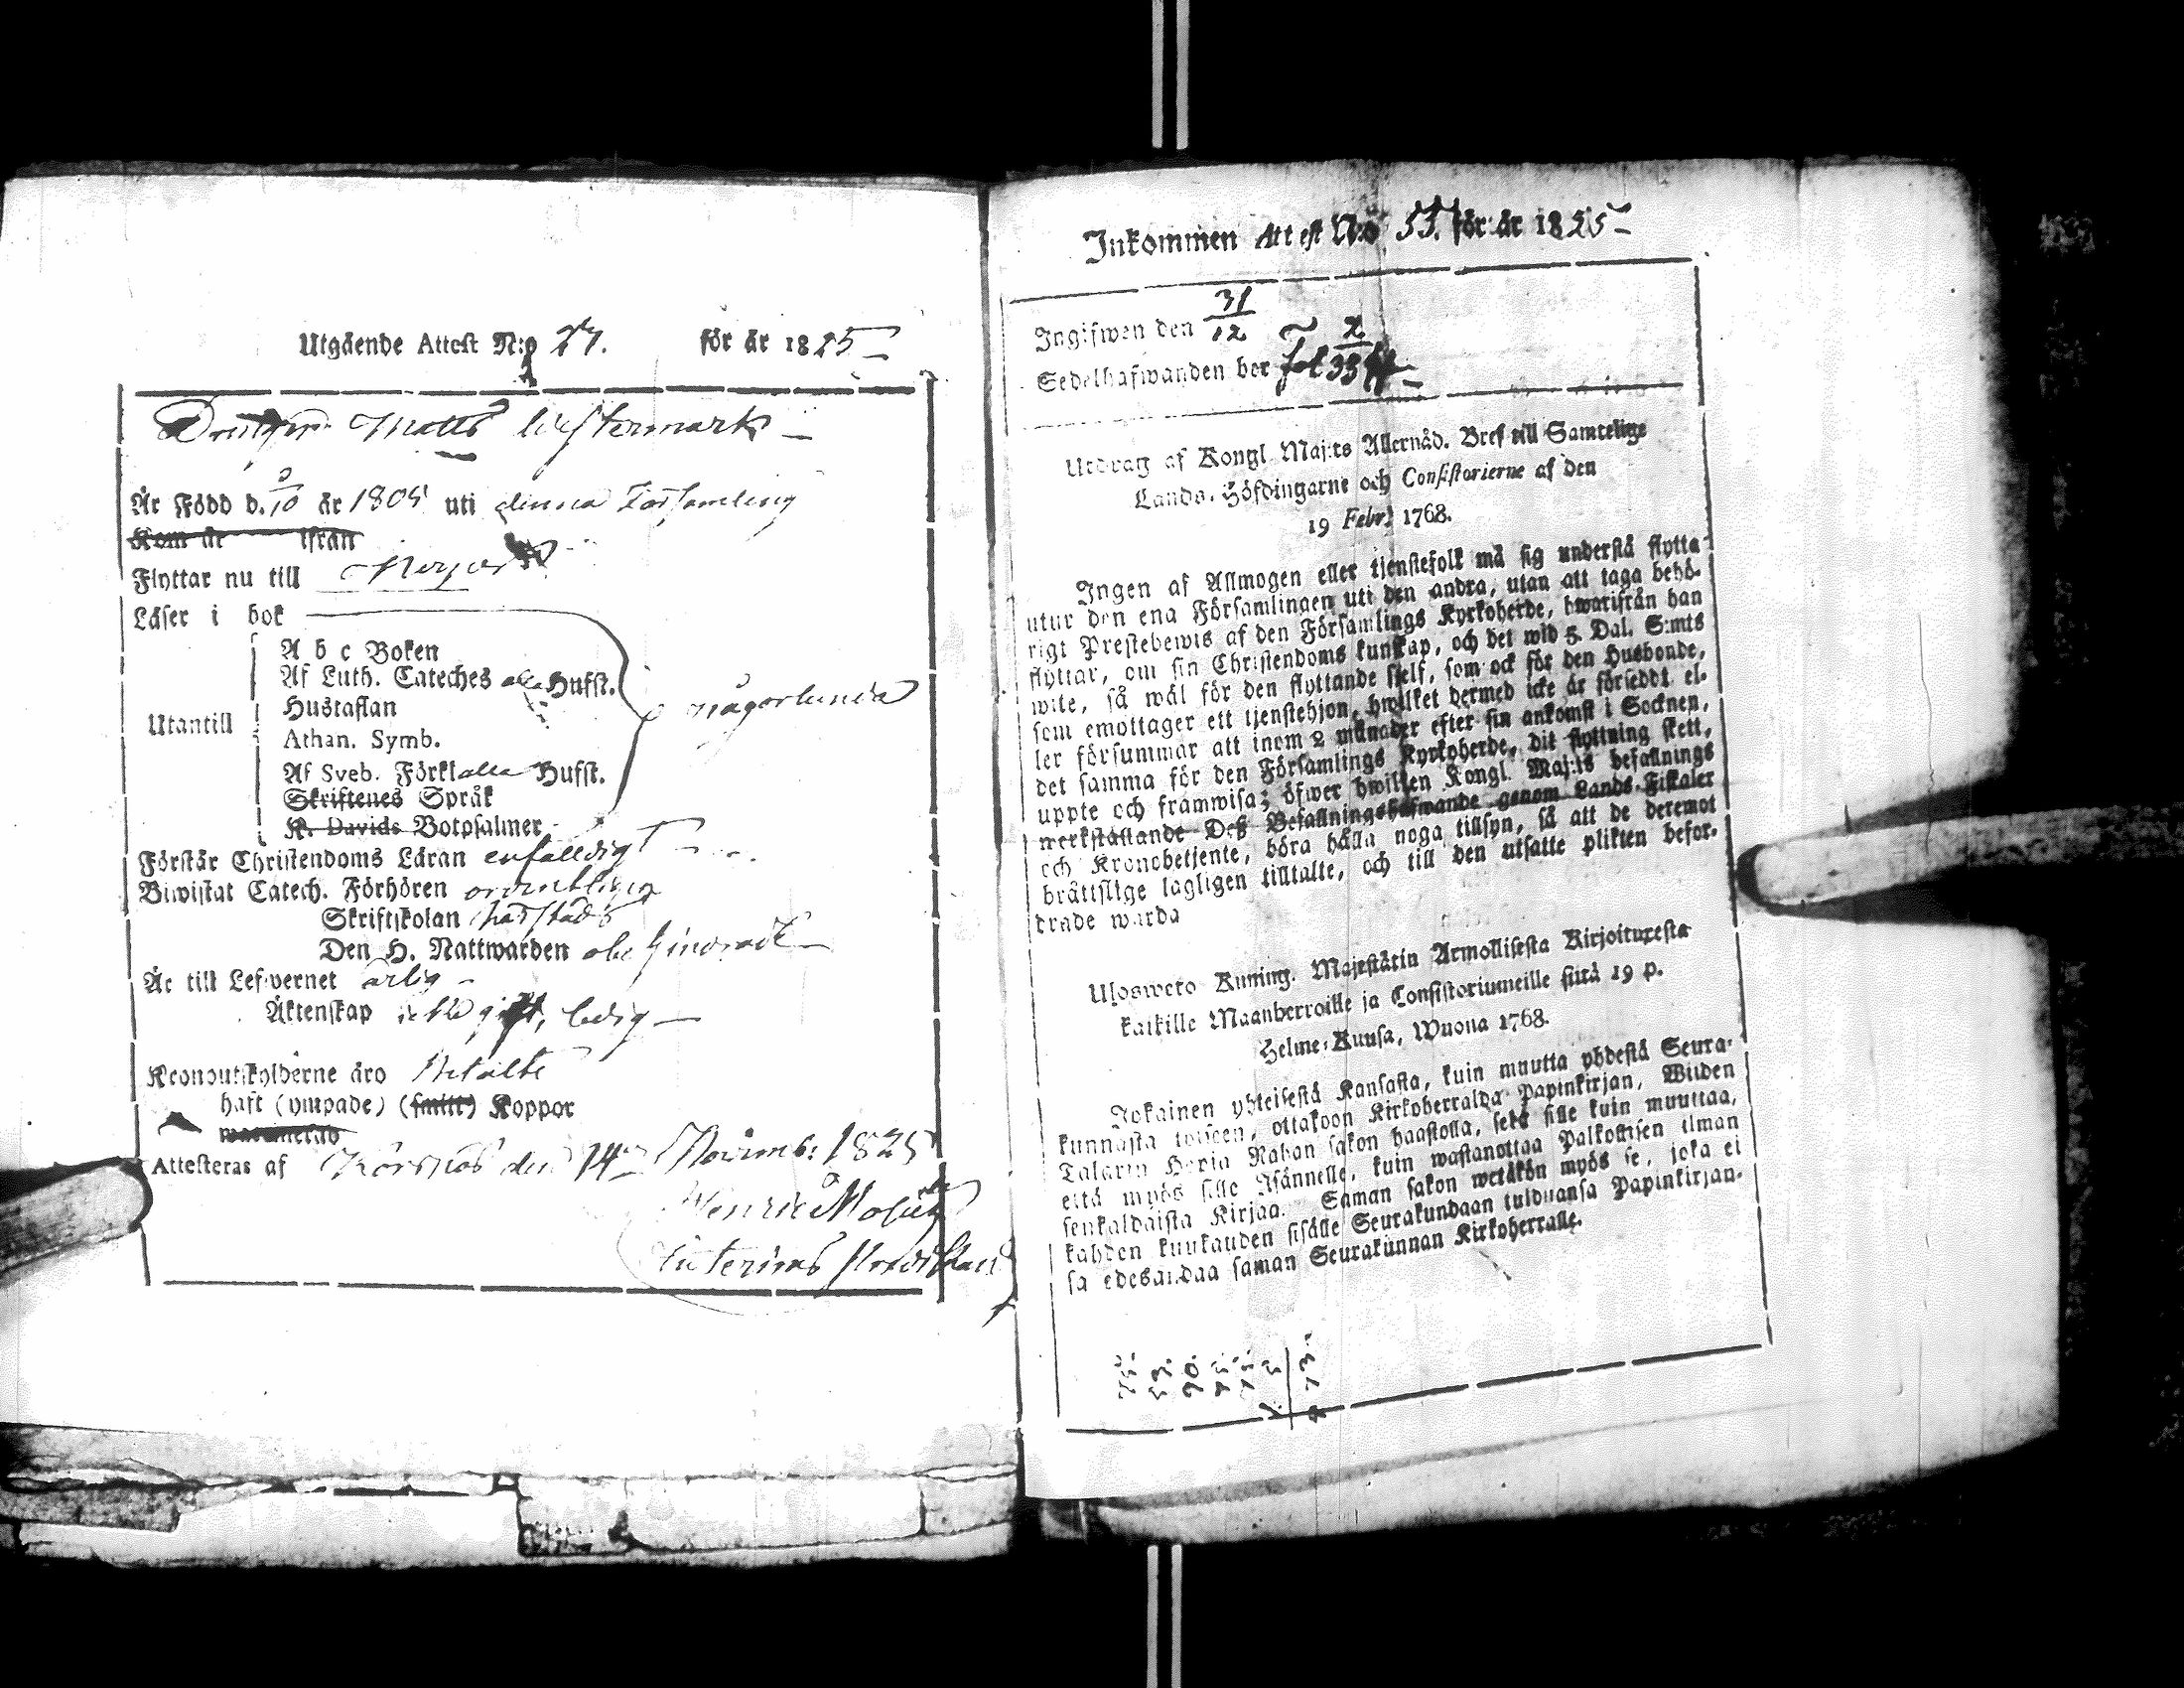 Utgående Attest N:o 27. för år 1825
Drängen Matts Westermark
Är Född d. /10 år 1805 uti denna Församling
Kom år ifrån
Flyttar nu till
Läser i bok
Utantill
A b c Boken
Af Luth. Cateches alla Hufst.
Hustaflan
Athan. Symb.
Af Sveb. Förkl alla Hufst.
Skriftenes Språk
K. Davids Botpsalmer
någorlunda
Förstår Christendoms Läran enfaldigt
Biwistat Catech. Förhören ordentligen
Skriftskolan
Den H. Nattwarden obehindradt
Är till Lefwernet ärlig
Äktenskap gift, ledig
Kronoutskylderne äro betalte
haft (ympade) (smitt) Koppor
Attesteras af Korsnäs den 14de Novemb: 1825
Henric
Interims
Inkommen Attest N:o 55. för år 1825
Ingifwen den 31/12
Sedelhafwanden bor fol
Utdrag af Kongl. Maj:ts Allernåd. Bref till Samtelige
Lands-Höfdingarne och Consistorierne af den
19 Febr. 1768.
Ingen af Allmogen eller tjenstefolk må sig understå flytta
utur den ena Församlingen uti den andra, utan att taga behö-
rigt Prestebewis af den Församlings Kyrkoherde, hwarifrån han
flyttar, om sin Christendoms kunskap, och det wid 5. Dal. S:mts
wite, så wäl för den flyttande sjelf, som ock för den Husbonde,
som emottager ett tjenstehjon, hwilket dermed icke är förseddt el-
ler försummar att inom 2 månader efter sin ankomst i Socknen,
det samma för den Församlings Kyrkoherde, dit flyttning skett,
uppte och framwisa; öfwer hwilken Kongl. Maj:ts befallnings
werkställande Deß Befallningshafwande genom Lands-Fiskaler
och Kronobetjente, böra hålla noga tillsyn, så att de deremot
bråttslige lagligen tilltalte, och till den utsatte plikten befor-
drade warda
Ulosweto Kuning. Majestätin Armollisesta Kirjoituxesta
kaikille Maanherroille ja Consistoriumeille siitä 19 p.
Helme-Kuusa, Wuona 1768.
Jokainen yhteisestä Kansasta, kuin muutta yhdestä Seura-
kunnasta toiseen, ottakoon Kirkoherralda Papinkirjan, Wiiden
Talarin Hopia Rahan sakon haastolla, sekä sille kuin muuttaa,
että myös sille Isännelle, kuin wastanottaa Palkollisen ilman
senkaldaista Kirjaa. Saman sakon wetäkön myös se, joka ei
kahden kuukauden sisälle Seurakundaan tulduansa Papinkirjan-
sa edesandaa saman Seurakunnan Kirkoherralle.